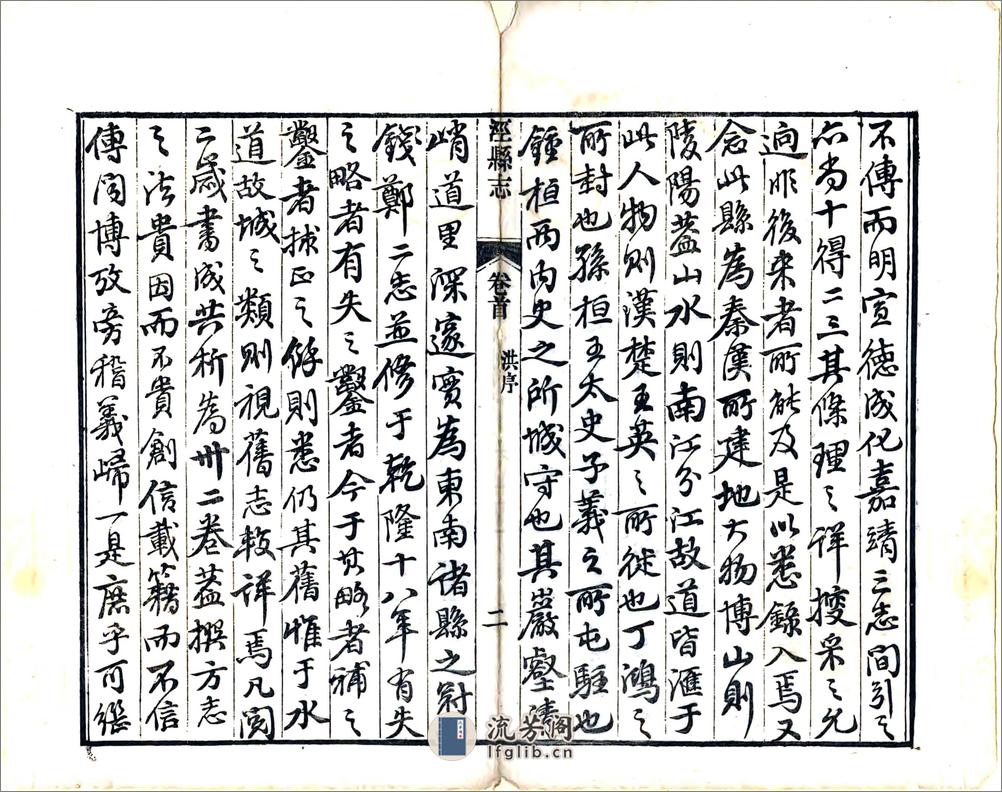 不傳而明宣德成化嘉靖三志間引之
亦尚十得二三其條理之詳摭采之允
迥非後来者所能及是以悉錄入焉又
念此縣為秦漢所建地大物博山則
陵陽蓋山水則南江分江故道皆滙于
此人物則漢楚王英之所徙也丁鴻之
所封也孫桓王太史子義之所屯駐也
鍾桓两内史之所城守也其巖壑清
涇縣志
卷首
洪序
二
峭道里深邃實為東南諸縣之冠
錢鄭二志並修于乾隆十八年有失
之略者有失之鑿者今于其略者補之
鑿者捄正之餘則悉仍其舊惟于水
道故城之類則視舊志較詳焉凡閲
二歲書成共析為卅二卷蓋撰方志
之法貴因而不貴創信載籍而不信
傳聞博攷旁稽義歸一是庶乎可繼
流芳阁
lfglib.cn